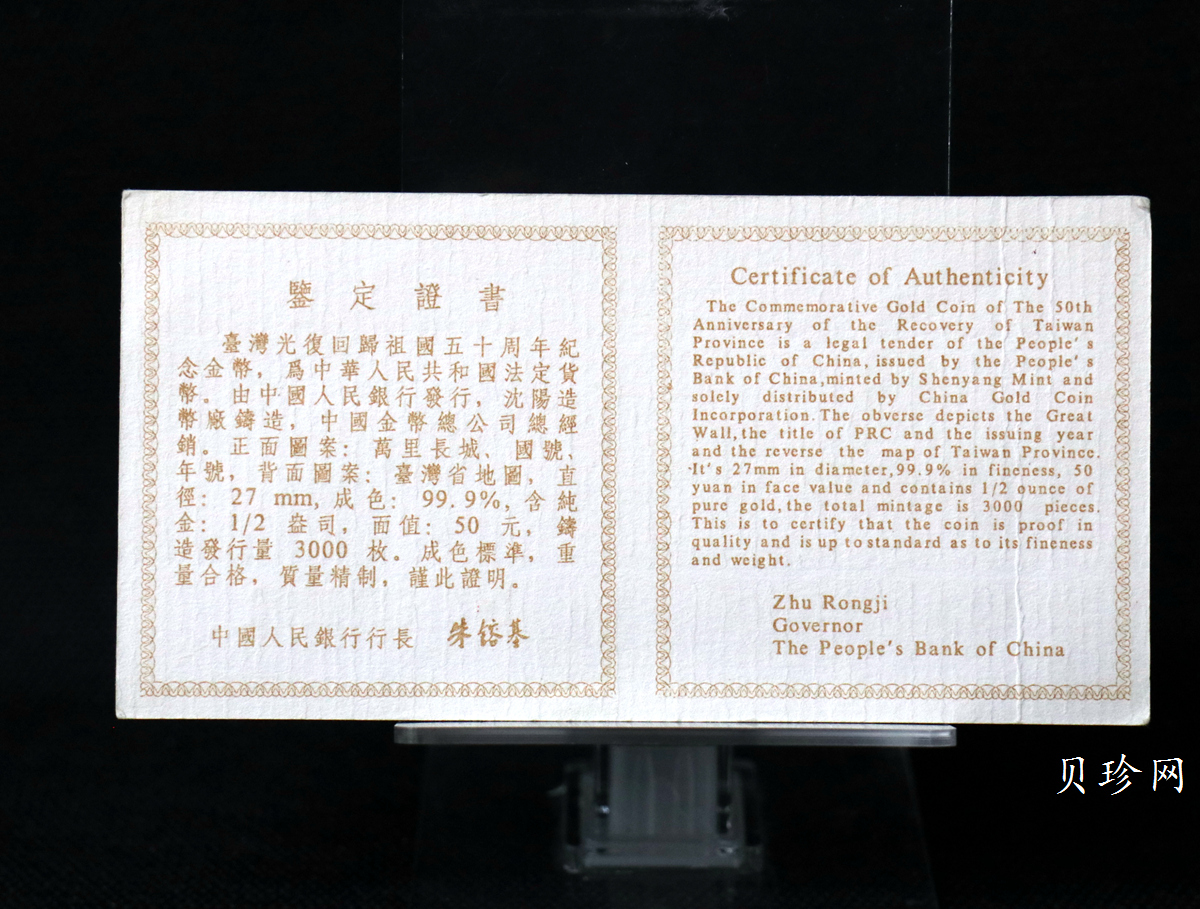 鑒定證書
臺灣光復回歸祖國五十周年紀
念金幣，爲中華人民共和國法定貨
幣。由中國人民銀行發行，沈陽造
幣廠鑄造，中國金幣總公司總經
銷。正面圖案：萬里長城、國號、
年號，背面圖案：臺灣省地圖，直
徑：27 mm, 成色：99.9%, 含純
金：1/2 盎司，面值：50 元，鑄
造發行量 3000 枚。成色標準，重
量合格，質量精制，謹此證明。
中國人民銀行行長 朱鎔基
Certificate of Authenticity
The Commemorative Gold Coin of The 50th
Anniversary of the Recovery of Taiwan
Province is a legal tender of the People's
Republic of China, issued by the People's
Bank of China,minted by Shenyang Mint and
solely distributed by China Gold Coin
Incorporation. The obverse depicts the Great
Wall,the title of PRC and the issuing year
and the reverse the map of Taiwan Province.
It's 27mm in diameter,99.9% in fineness, 50
yuan in face value and contains 1/2 ounce of
pure gold,the total mintage is 3000 pieces.
This is to certify that the coin is proof in
quality and is up to standard as to its fineness
and weight.
Zhu Rongji
Governor
The People's Bank of China
贝珍网